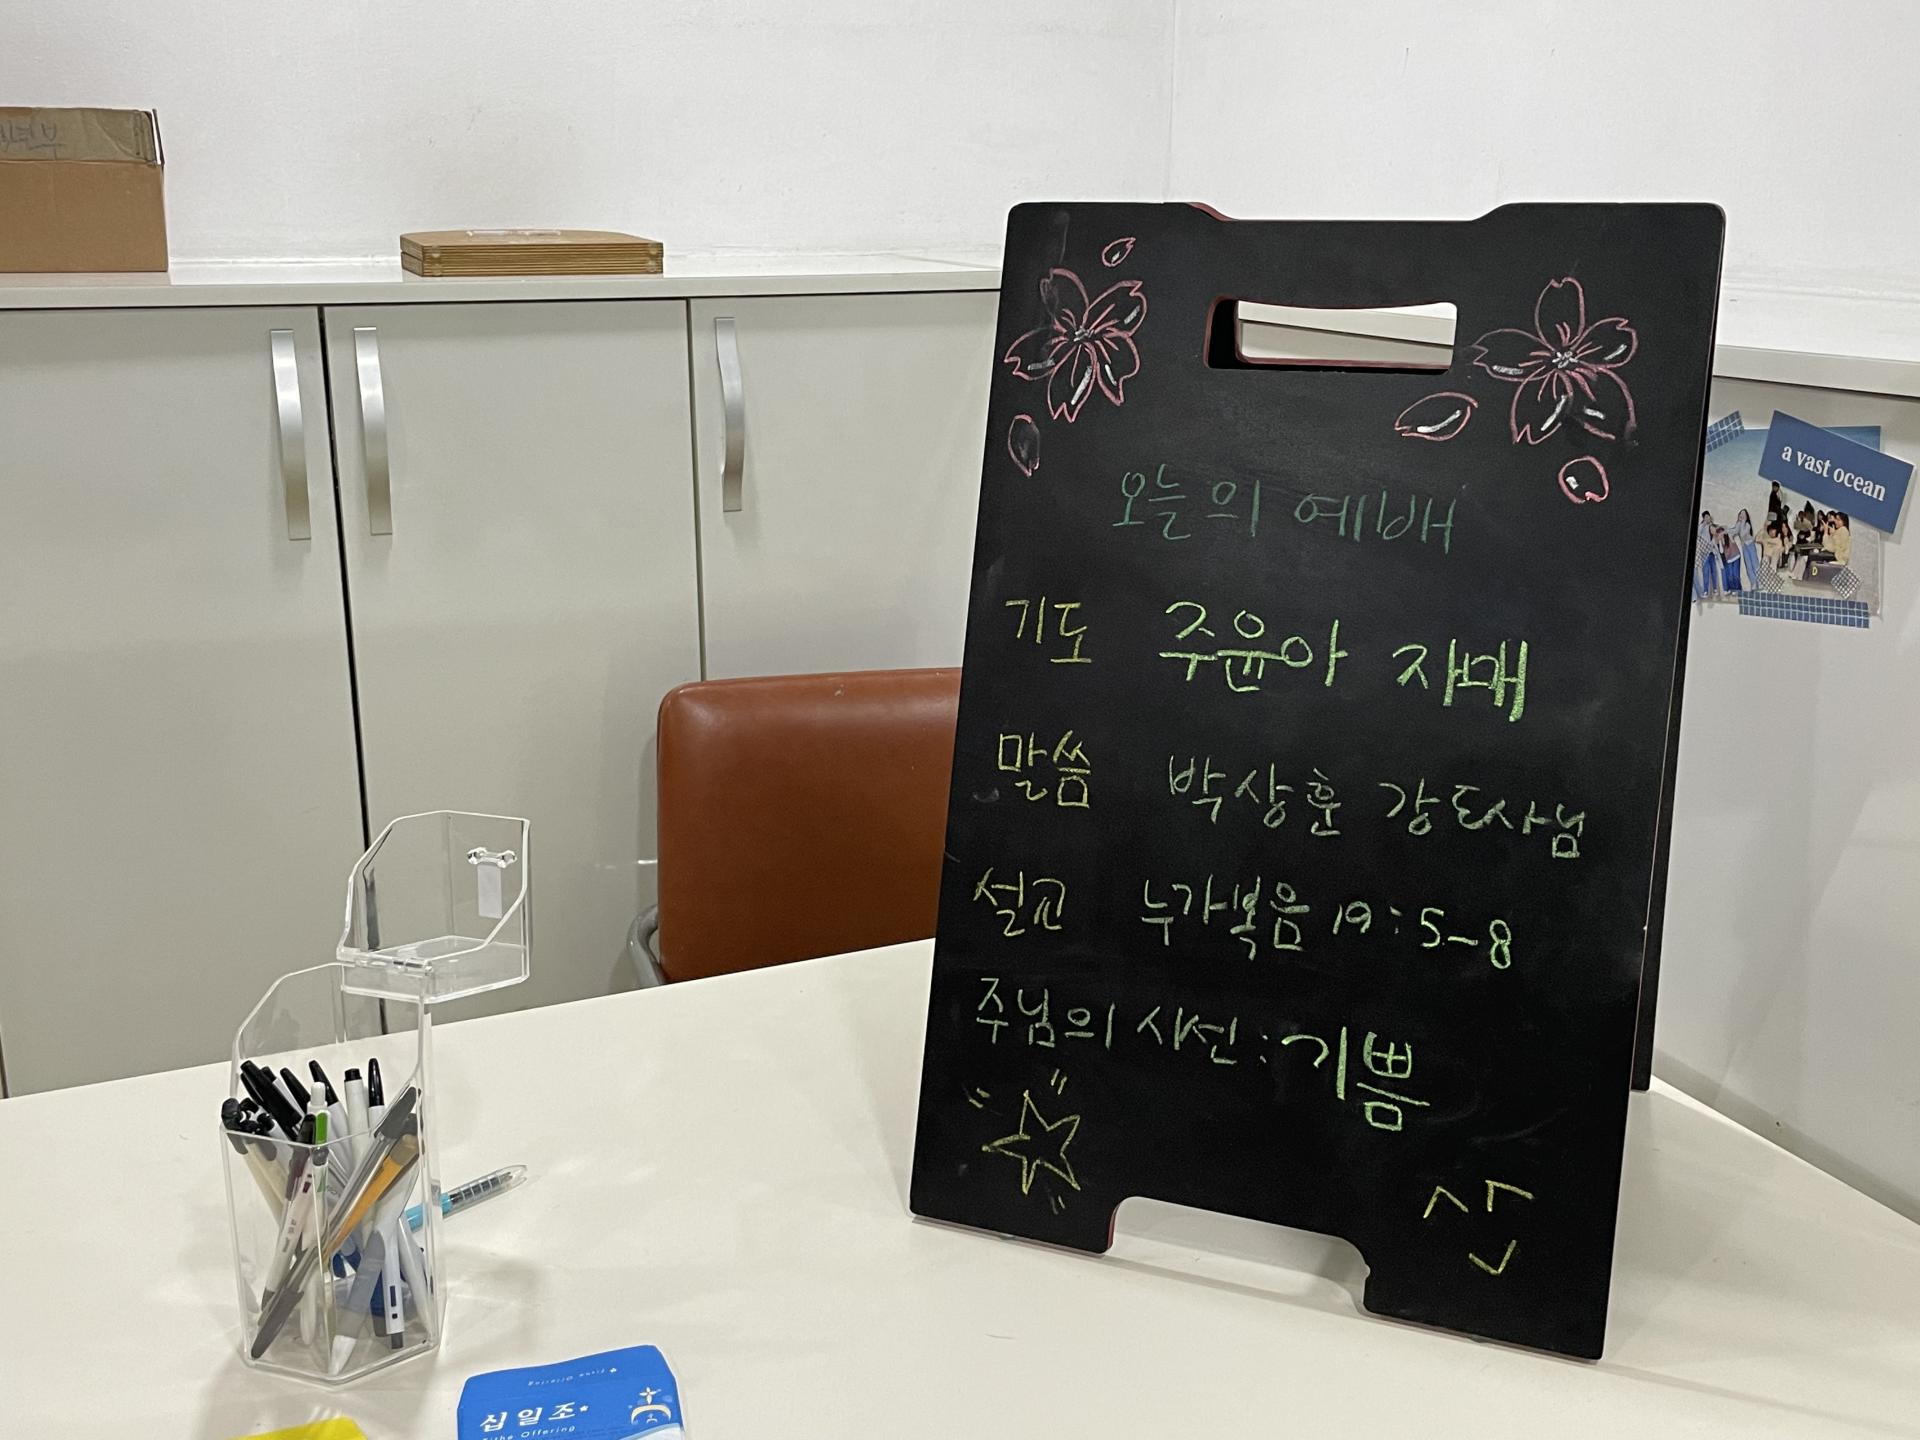 a vast ocean
오늘의 예배
기도 주윤아 자매
말씀 박상훈 강도사님
설교 누가복음 19:5-8
주님의 시선:기쁨
십일조
Tithe Offering